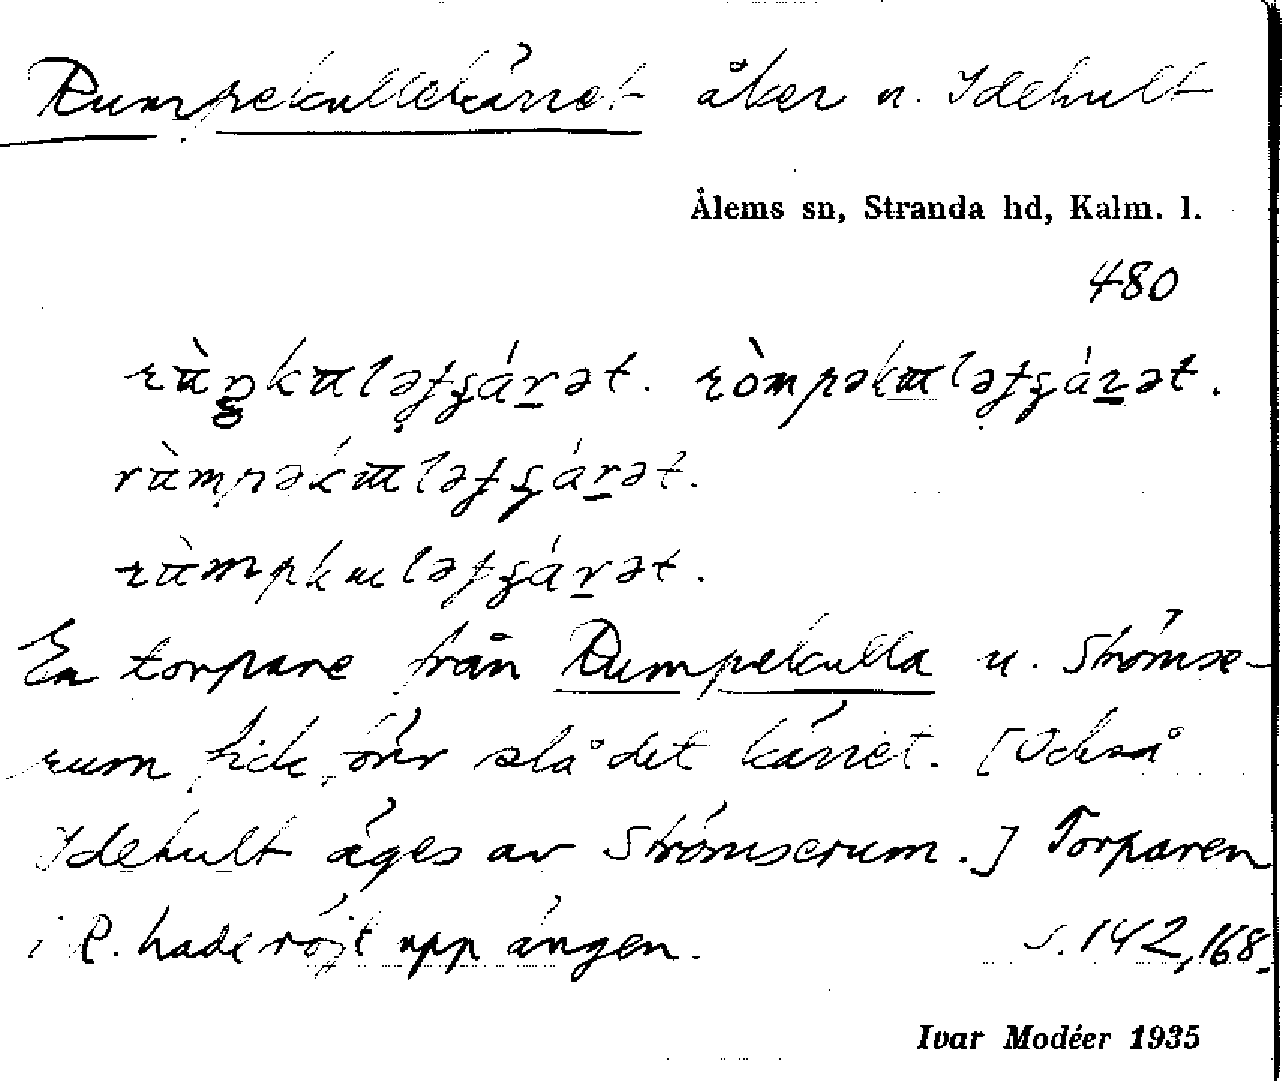 Rumpekullekärret åker u. Idehult
Ålems sn, Stranda hd, Kalm. l.
480
En torpare från Rumpekulla u. Strömse-
rum fick förr slå det kärret. [Också
Idehult äges av Strömserum.] Torparen
i R. hade röjt upp ängen. s. 142, 168.
Ivar Modéer 1935